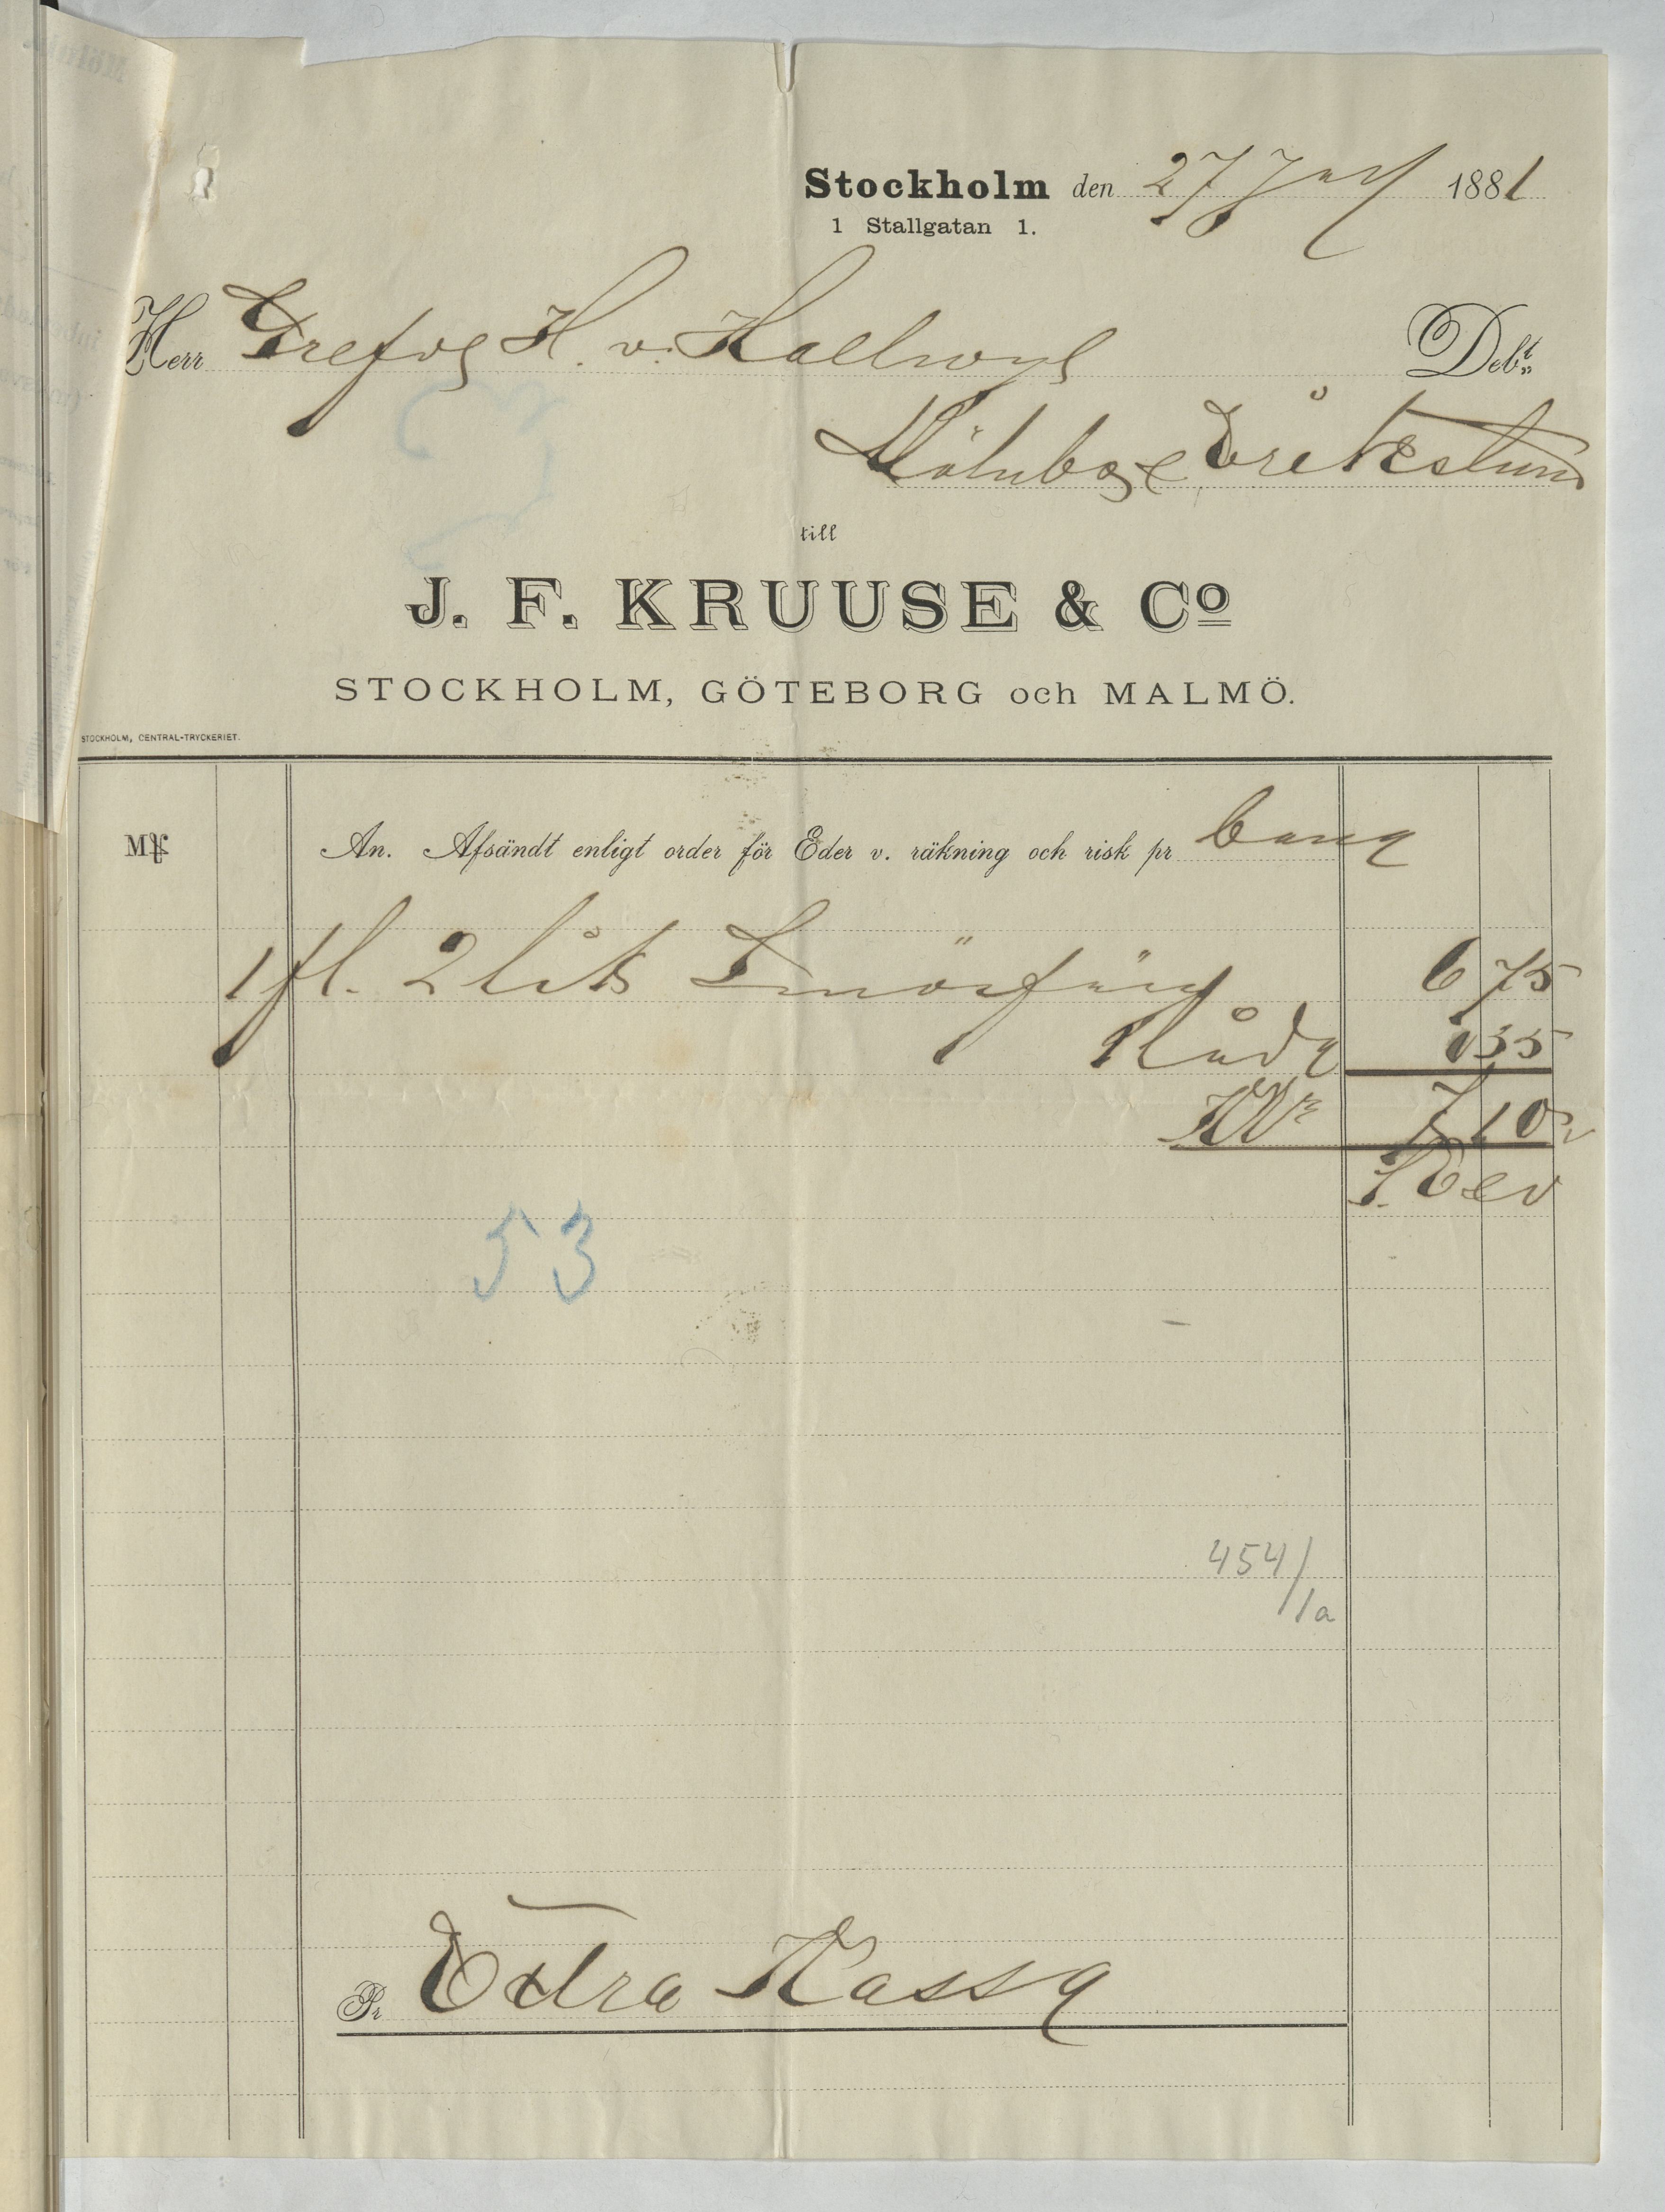 Stockholm den 27 July 1881
1 Stallgatan 1.
Herr Grefve H. v. Hallwyl Debt
Mölnbo & Erikslund
till
J. F. KRUUSE & Co
STOCKHOLM, GÖTEBORG och MALMÖ.
STOCKHOLM, CENTRAL-TRYCKERIET.
An. Afsändt enligt order för Eder v. räkning och risk pr bana
1 fl. 2 lits Smörfärg 6 75
Låda 0 35
Kr 7 10
53
454/1a
Pr Extra Kassa